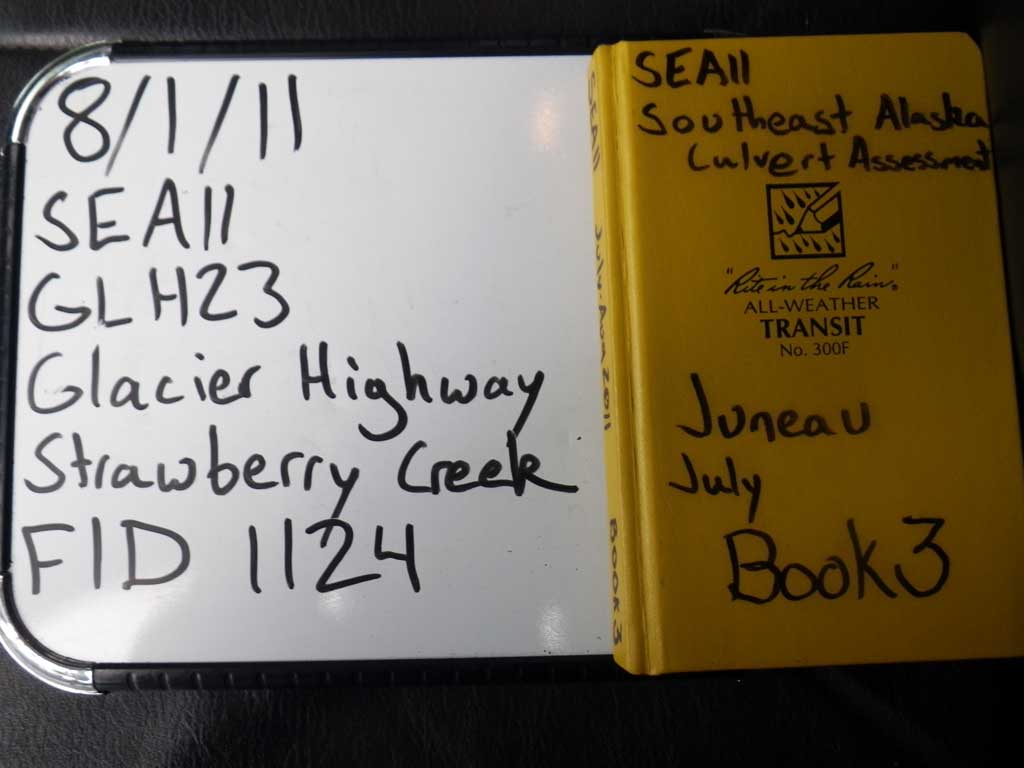 8/1/11
SEA11
GLH23
Glacier Highway
Strawberry Creek
FID 1124
SEA11 July-Aug 2011 Book 3
SEA11
Southeast Alaska
Culvert Assessment
"Rite in the Rain"®
ALL-WEATHER
TRANSIT
No. 300F
Juneau
July
Book 3